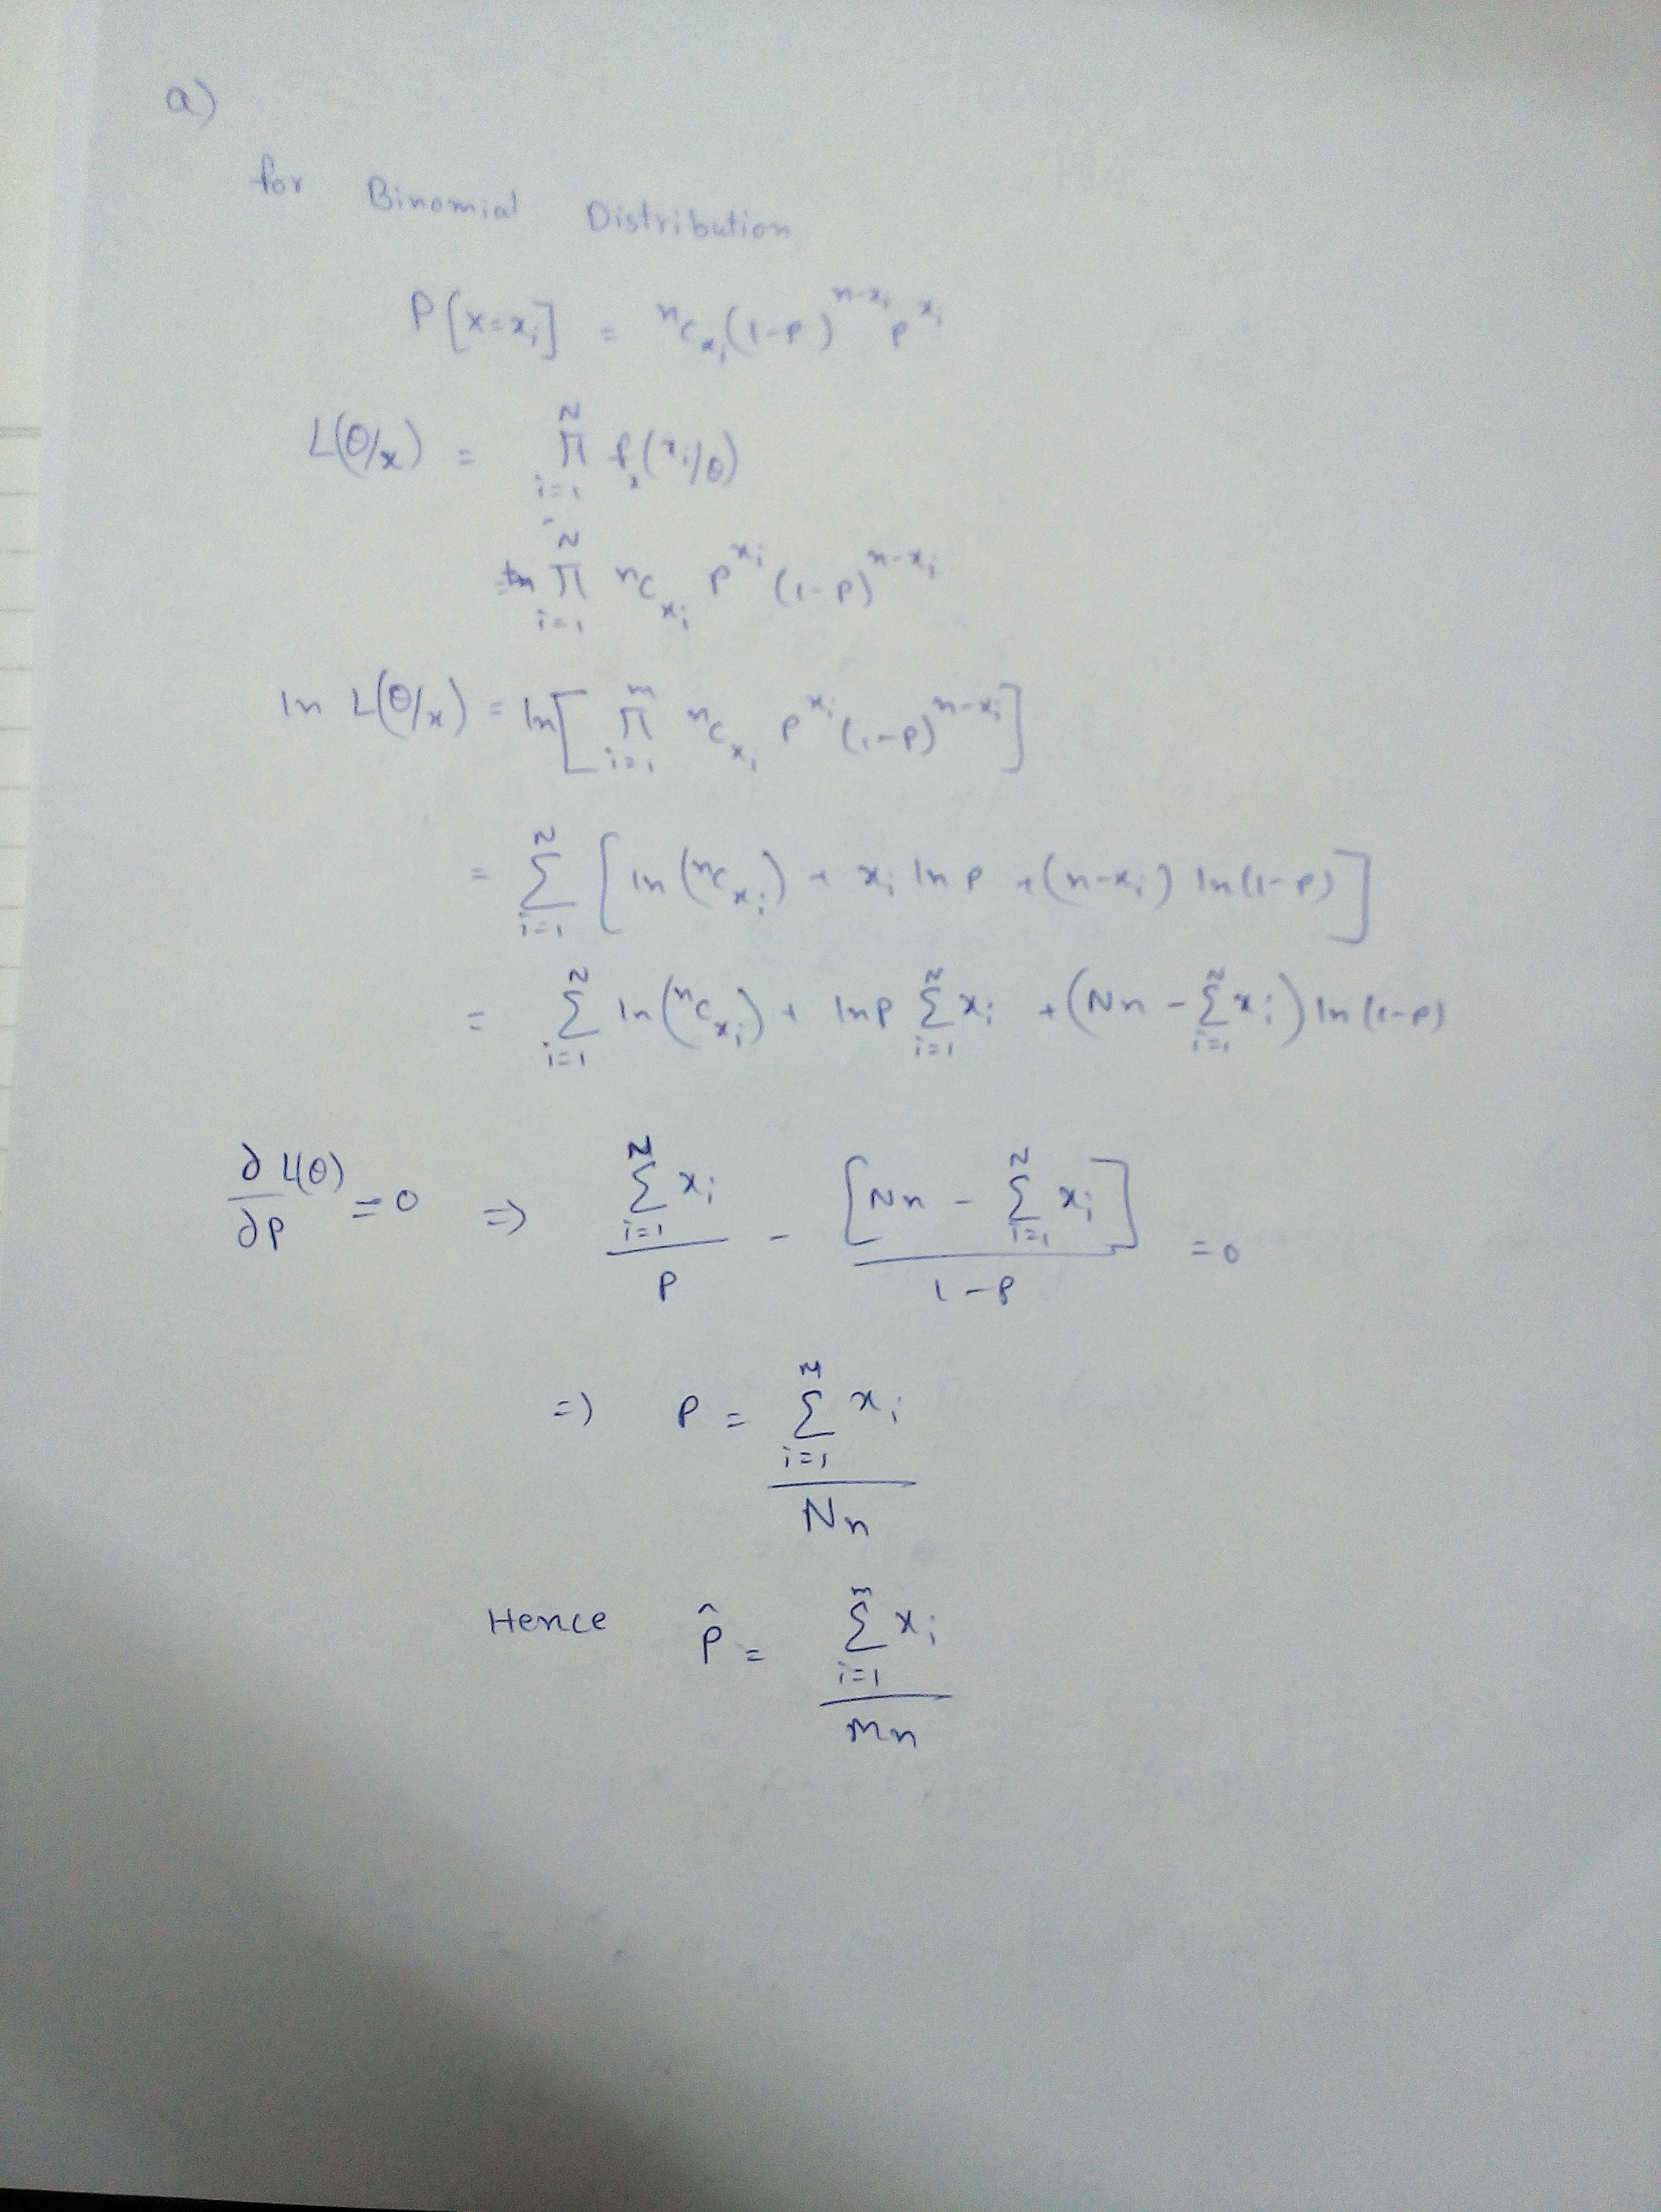 a)
for Binomial Distribution
P[x=x_i] = ^nC_{x_i} (1-p)^{n-x_i} p^{x_i}
L(θ/x) = ∏_{i=1}^{N} f_x(x_i/θ)
∏_{i=1}^{N} ^nC_{x_i} p^{x_i} (1-p)^{n-x_i}
ln L(θ/x) = ln[ ∏_{i=1}^{m} ^nC_{x_i} p^{x_i} (1-p)^{n-x_i} ]
= ∑_{i=1}^{N} [ ln(^nC_{x_i}) + x_i ln p + (n-x_i) ln(1-p) ]
= ∑_{i=1}^{N} ln(^nC_{x_i}) + ln p ∑_{i=1}^{N} x_i + (Nn - ∑_{i=1}^{N} x_i) ln(1-p)
∂L(θ)/∂p = 0 => ∑_{i=1}^{N} x_i / p - [Nn - ∑_{i=1}^{N} x_i] / 1-p = 0
=> p = ∑_{i=1}^{N} x_i / Nn
Hence p̂ = ∑_{i=1}^{m} x_i / mn